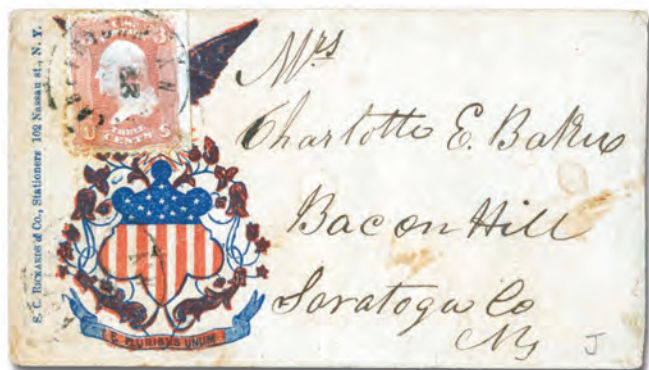 S. C. RICKARDS & Co., Stationers 102 Nassau st., N. Y.
3
U S
THREE
CENTS
E PLURIBUS UNUM
Mrs
Charlotte E. Baker
Bacon Hill
Saratoga Co
Ny
J